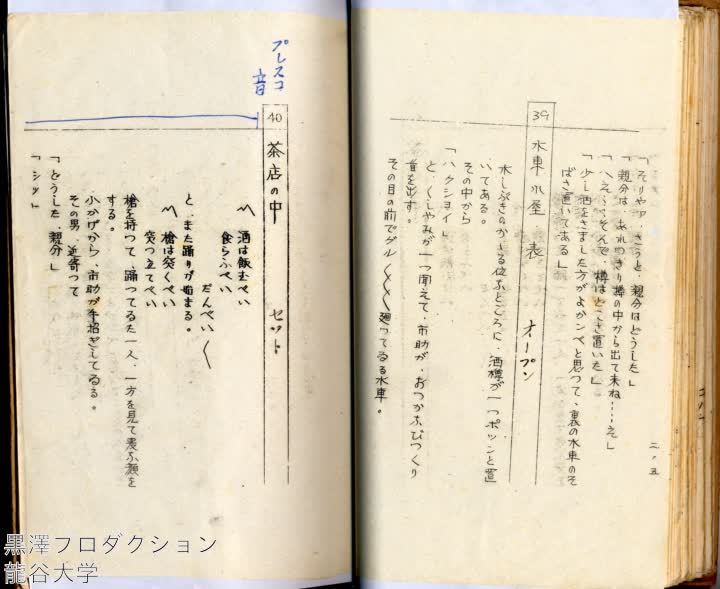 「そりやァ、さうと、親分はどうした」
「親分は、あれつきり樽の中から出て来ね……え」
「へえ……そんで、樽はどこさ置いた」
「少し酒をさました方がよかンべと思つて、裏の水車のそ
ばさ置いてある」
39 水車小屋 表 オープン
水しぶきのかゝる位なところに、酒樽が一つポツンと置
いてある。
その中から
「ハクシヨイ」
と、くしやみが一つ聞えて、市助が、おつかなびつくり
首を出す。
その目の前でグル〱〱廻つてゐる水車。
二ノ五
プレスコ
音
40 茶店の中 セット
〽 酒は飯むべい
食らふべい
だんべい〱
と、また踊りが始まる。
〽 槍は突くべい
突つ立てべい
槍を持つて、踊つてゐた一人、一方を見て変な顔を
する。
小かげから、市助が手招ぎしてゐる。
その男、近寄つて
「どうした、親分」
「シッ」
黒澤プロダクション
龍谷大学